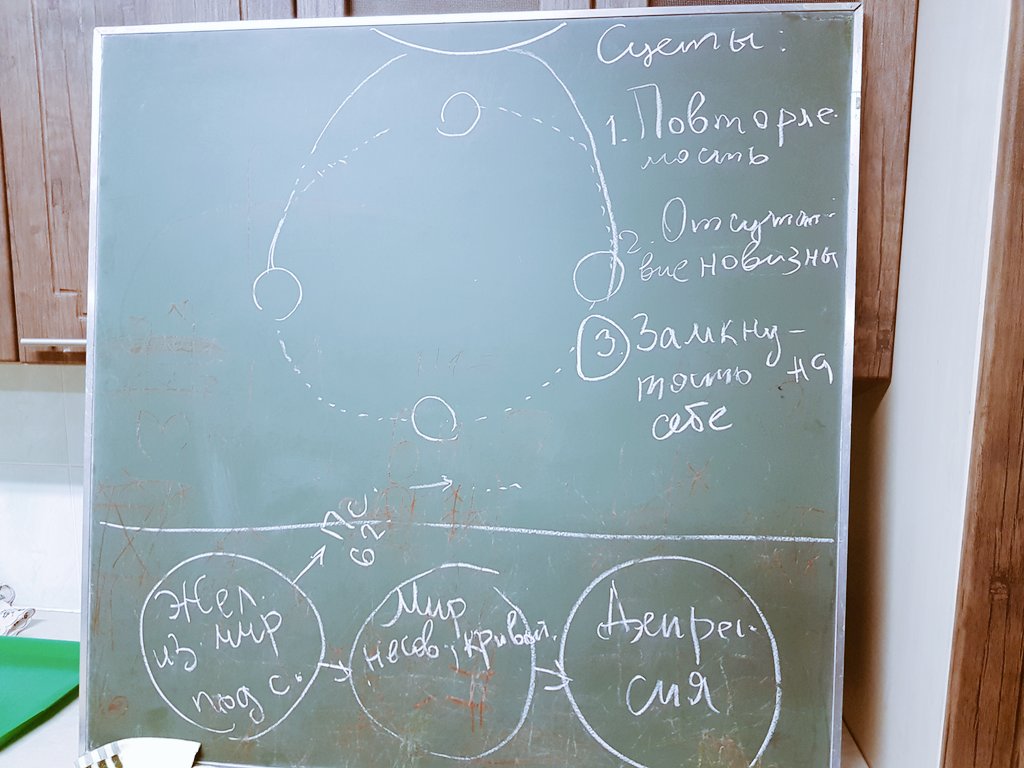 Суеты:
1. Повторяе-
мость
2. Отсутст-
вие новизны
3. Замкну-
тость на
себе
Жел.
из. мир
под с.
Мир
несов., кривой.
Депрес-
сия